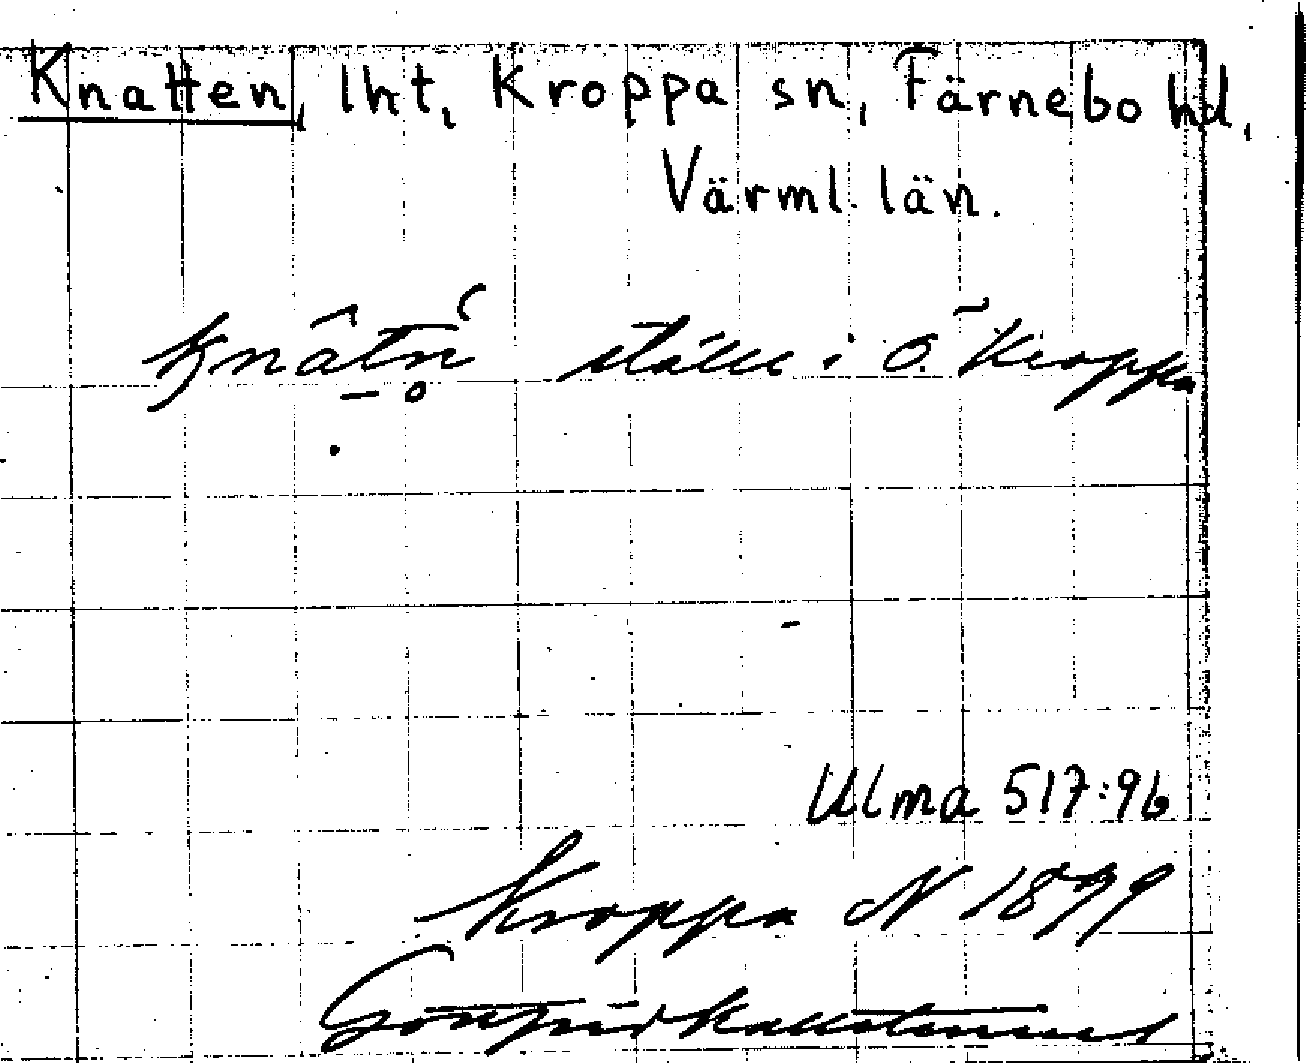 Knatten, lht, Kroppa sn, Färnebo hd,
Värml. län.
ställe i Ö. Kroppa
Ulma 517:96
Kroppa N 1879
Gottfrid Kallstenius